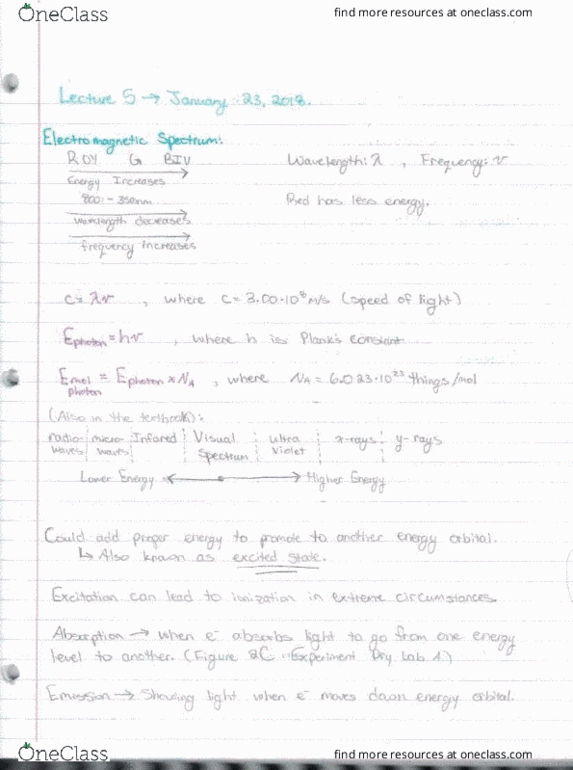 OneClass
find more resources at oneclass.com
Lecture 5 → January 23, 2018.
Electromagnetic Spectrum:
ROY G BIV
Wavelength: λ , Frequency: ν
Energy Increases
800 - 350nm
Red has less energy.
wavelength decreases
frequency increases
c = λν , where c = 3.00·10⁸ m/s (speed of light)
Ephoton = hν , where h is Plank's constant
Emol photon = Ephoton × NA , where NA = 6.023·10²³ things/mol
(Also in the textbook):
radio waves | micro waves | Infared | Visual Spectrum | ultra Violet | x-rays | γ-rays
Lower Energy ←→ Higher Energy
Could add proper energy to promote to another energy orbital.
↳ Also known as excited state.
Excitation can lead to ionization in extreme circumstances.
Absorption → when e⁻ absorbs light to go from one energy
level to another. (Figure 2C Experiment Dry Lab A)
Emission → Showing light when e⁻ moves down energy orbital.
OneClass
find more resources at oneclass.com